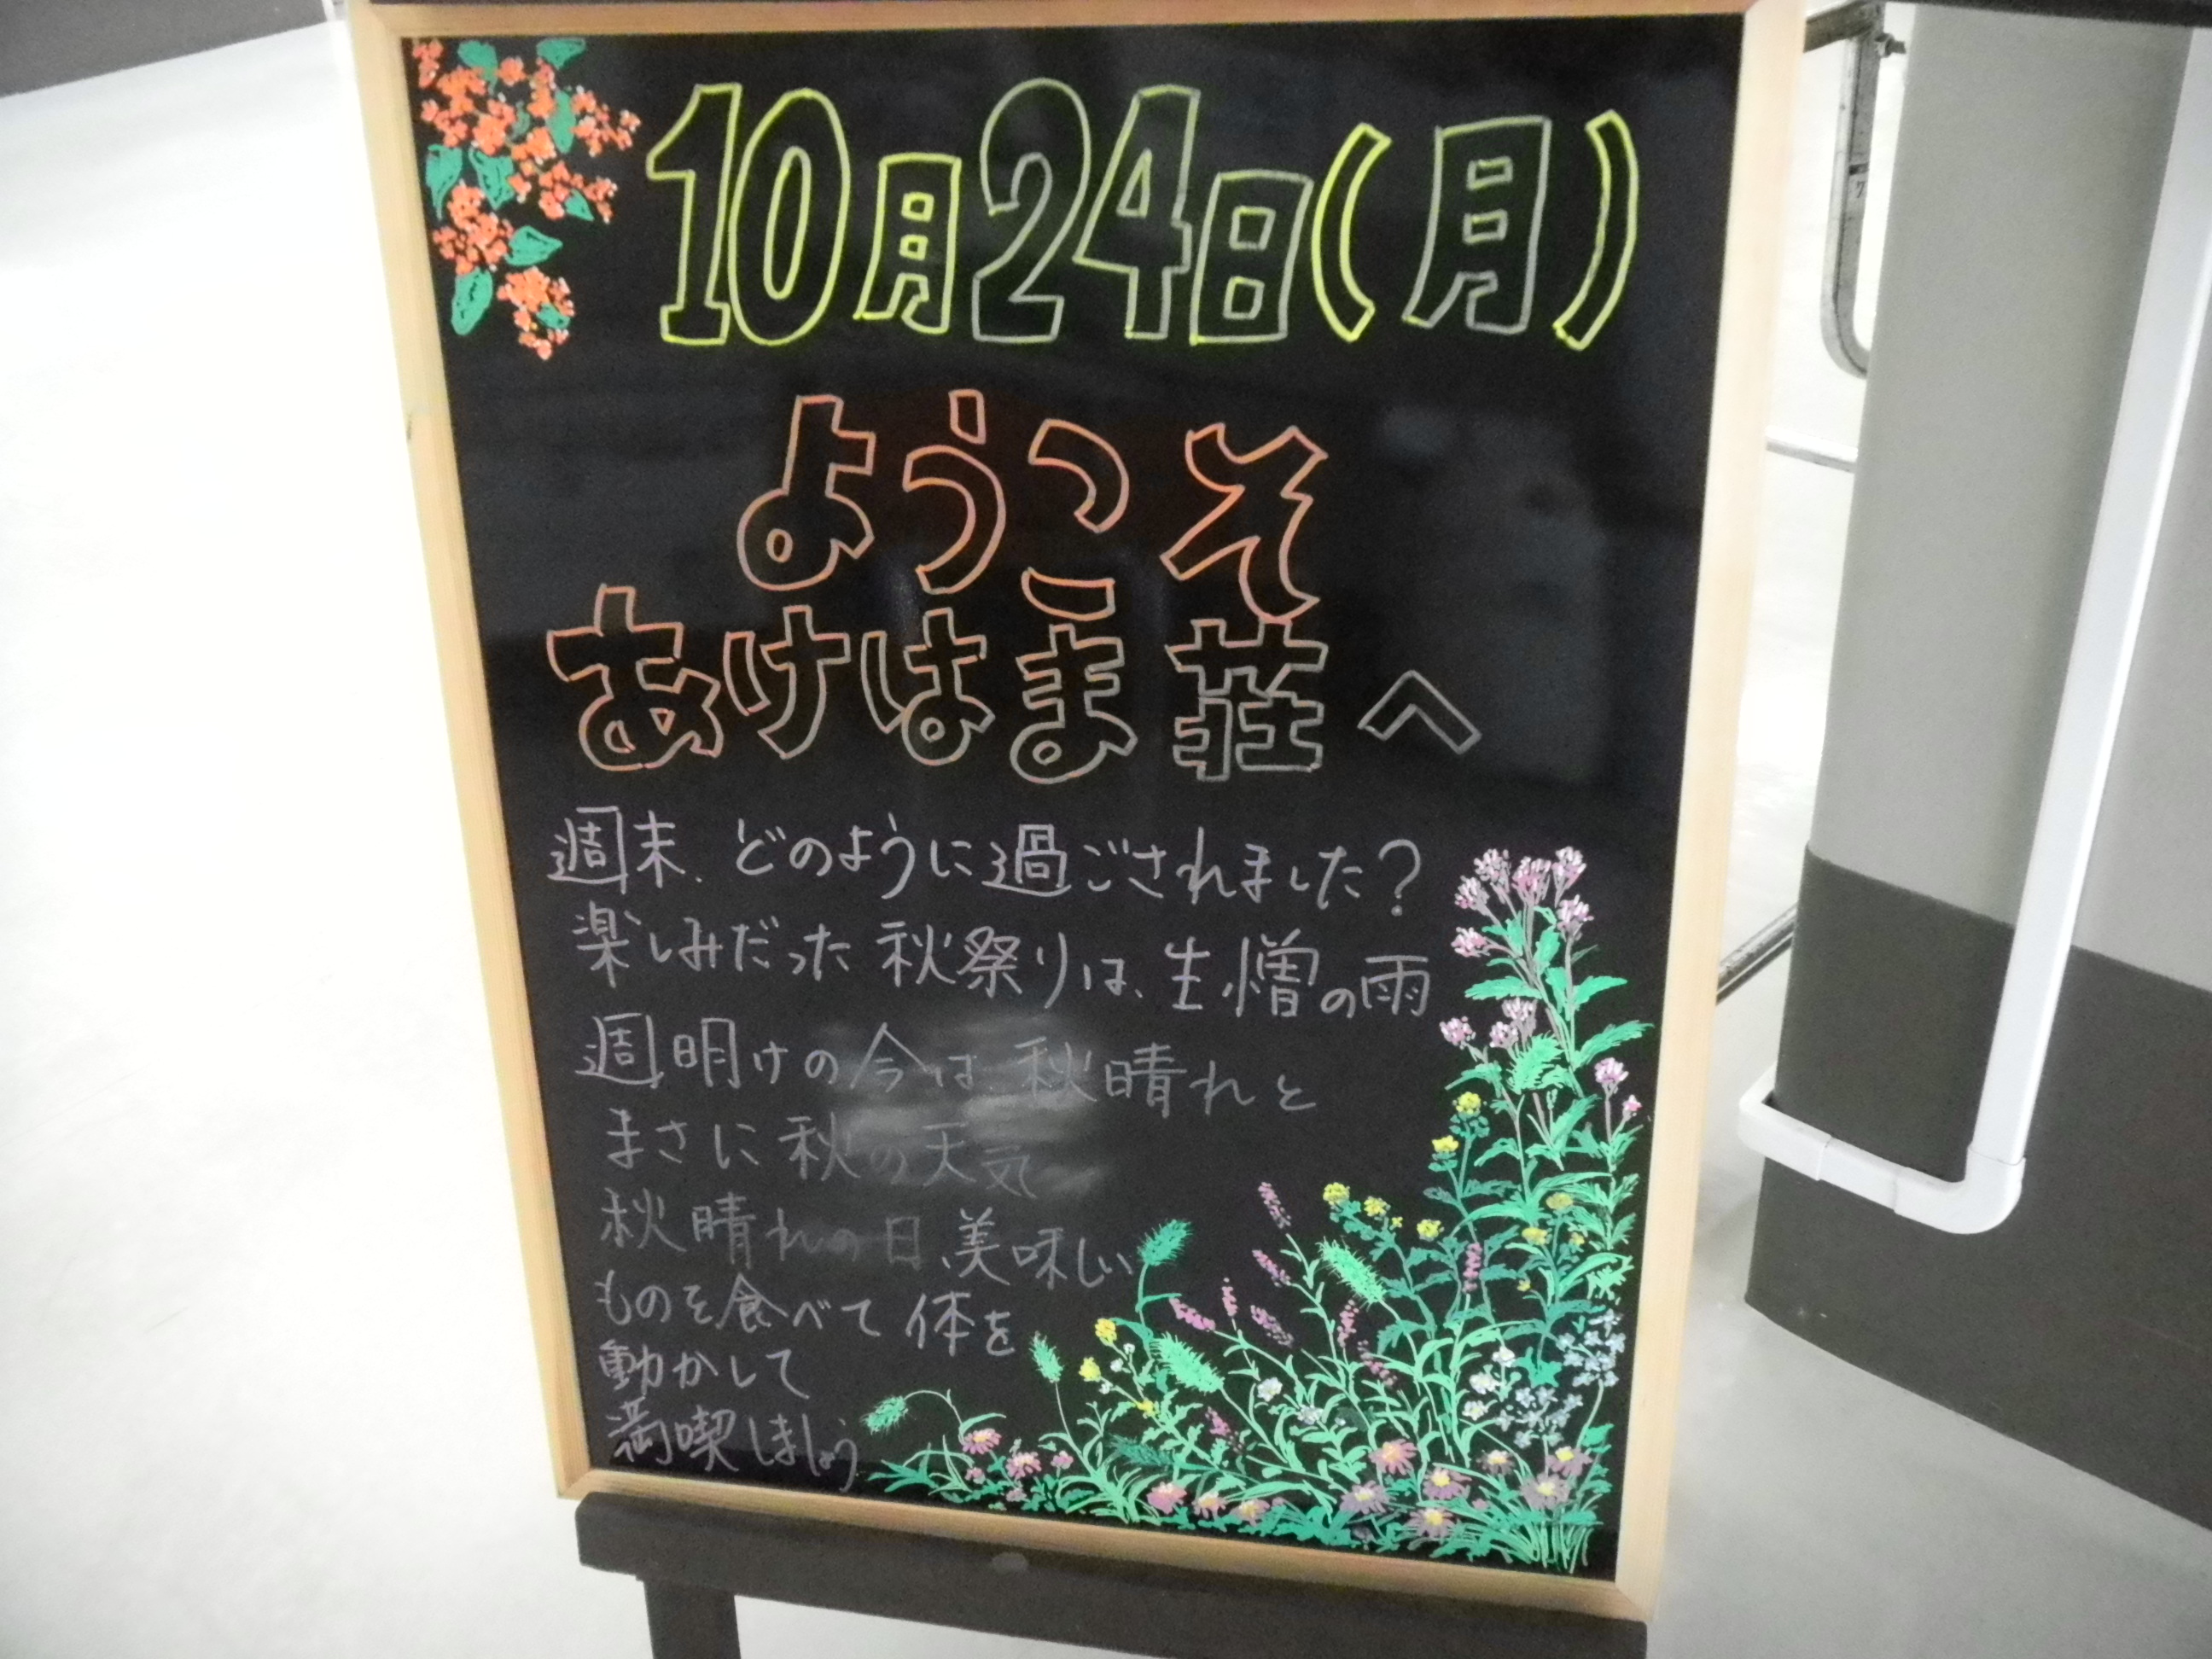 10月24日(月)
ようこそ
あけはま荘へ
週末、どのように過ごされました?
楽しみだった秋祭りは、生憎の雨
週明けの今は、秋晴れと
まさに秋の天気
秋晴れの日、美味しい
ものを食べて体を
動かして
満喫しましょう